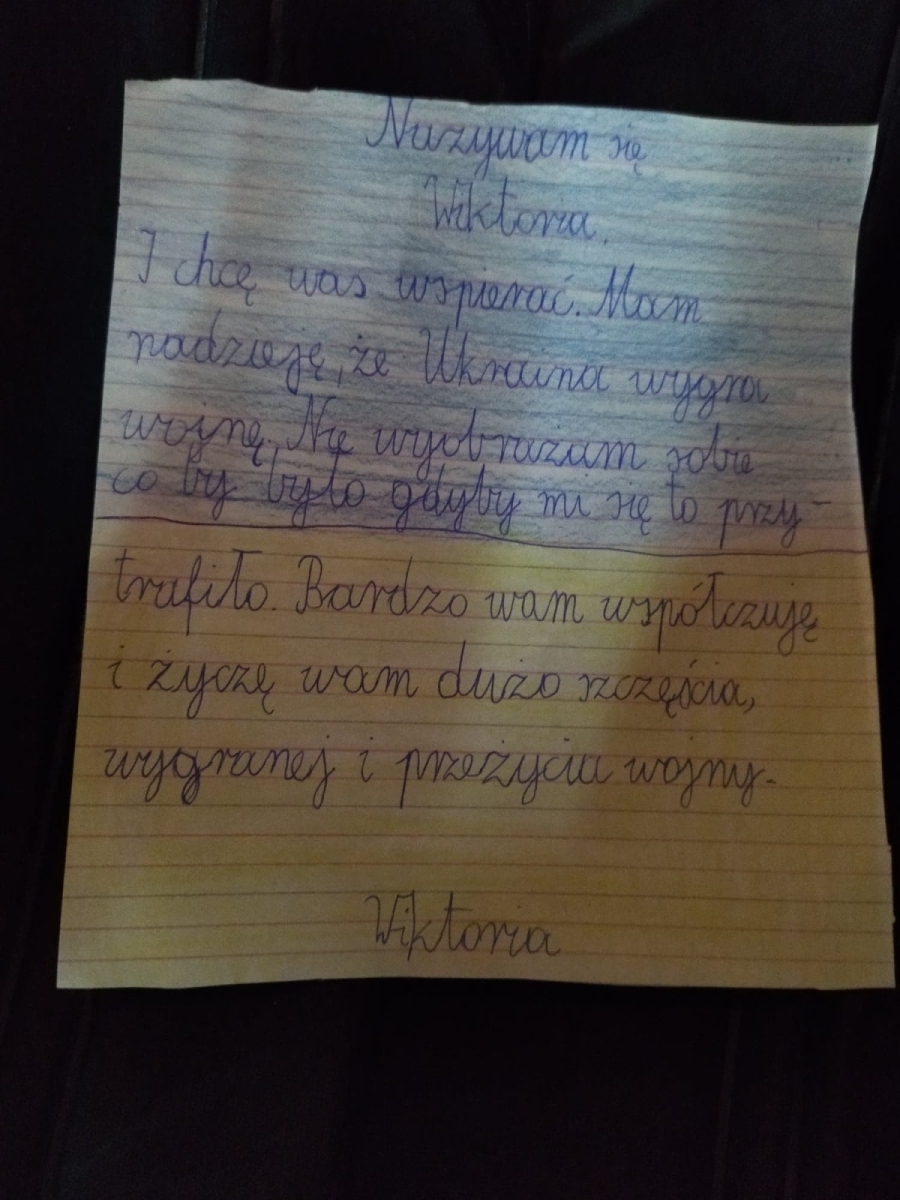 Nazywam się
Wiktoria.
I chcę was wspierać. Mam
nadzieję, że Ukraina wygra
wojnę. Nie wyobrażam sobie
co by było gdyby mi się to przy-
trafiło. Bardzo wam współczuję
i życzę wam dużo szczęścia,
wygranej i przeżycia wojny.
Wiktoria